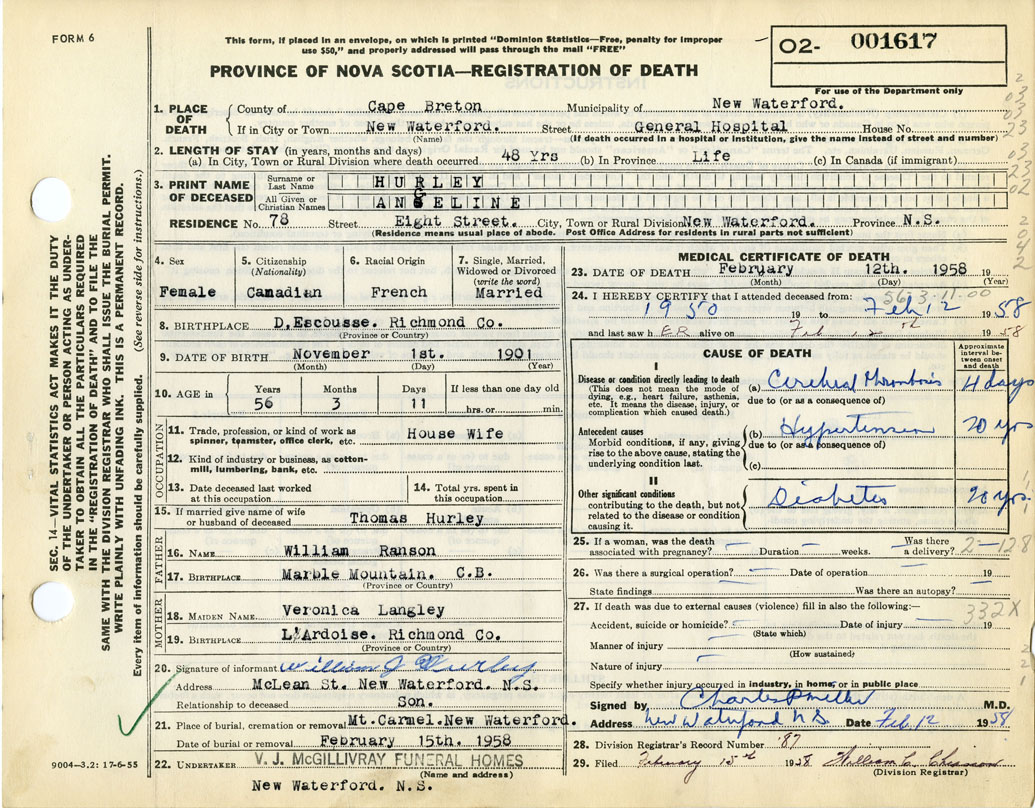 FORM 6
This form, if placed in an envelope, on which is printed "Dominion Statistics—Free, penalty for improper
use $50," and properly addressed will pass through the mail "FREE"
PROVINCE OF NOVA SCOTIA—REGISTRATION OF DEATH
02- 001617
For use of the Department only
SEC. 14—VITAL STATISTICS ACT MAKES IT THE DUTY
OF THE UNDERTAKER OR PERSON ACTING AS UNDER-
TAKER TO OBTAIN ALL THE PARTICULARS REQUIRED
IN THE "REGISTRATION OF DEATH" AND TO FILE THE
SAME WITH THE DIVISION REGISTRAR WHO SHALL ISSUE THE BURIAL PERMIT.
WRITE PLAINLY WITH UNFADING INK. THIS IS A PERMANENT RECORD.
Every item of information should be carefully supplied. (See reverse side for instructions.)
1. PLACE OF DEATH
County of Cape Breton Municipality of New Waterford.
If in City or Town New Waterford. Street General Hospital House No.
(Name) (If death occurred in a hospital or institution, give the name instead of street and number)
2. LENGTH OF STAY (in years, months and days)
(a) In City, Town or Rural Division where death occurred 48 Yrs (b) In Province Life (c) In Canada (if immigrant)
3. PRINT NAME OF DECEASED
Surname or Last Name HURLEY
All Given or Christian Names ANGELINE
RESIDENCE No. 78 Street Eight Street. City, Town or Rural Division New Waterford. Province N.S.
(Residence means usual place of abode. Post Office Address for residents in rural parts not sufficient)
4. Sex
Female
5. Citizenship
(Nationality)
Canadian
6. Racial Origin
French
7. Single, Married,
Widowed or Divorced
(write the word)
Married
8. BIRTHPLACE D,Escousse. Richmond Co.
(Province or Country)
9. DATE OF BIRTH November 1st. 1901
(Month) (Day) (Year)
10. AGE in
Years Months Days If less than one day old
56 3 11 hrs. or min.
OCCUPATION
11. Trade, profession, or kind of work as
spinner, teamster, office clerk, etc. House Wife
12. Kind of industry or business, as cotton-
mill, lumbering, bank, etc.
13. Date deceased last worked
at this occupation
14. Total yrs. spent in
this occupation
15. If married give name of wife
or husband of deceased Thomas Hurley
FATHER
16. NAME William Ranson
17. BIRTHPLACE Marble Mountain. C.B.
(Province or Country)
MOTHER
18. MAIDEN NAME Veronica Langley
19. BIRTHPLACE L'Ardoise. Richmond Co.
(Province or Country)
20. Signature of informant William J Hurley
Address McLean St. New Waterford. N.S.
Relationship to deceased Son.
21. Place of burial, cremation or removal Mt.Carmel.New Waterford.
Date of burial or removal February 15th. 1958
22. UNDERTAKER V. J. McGILLIVRAY FUNERAL HOMES
(Name and address)
New Waterford. N.S.
9004—3.2: 17-6-55
MEDICAL CERTIFICATE OF DEATH
23. DATE OF DEATH February 12th. 1958 19
(Month) (Day) (Year)
24. I HEREBY CERTIFY that I attended deceased from: 56 3-11-00
1950 19 to Feb 12 1958
and last saw h ER alive on 1958
CAUSE OF DEATH
Approximate
interval be-
tween onset
and death
I
Disease or condition directly leading to death
(This does not mean the mode of
dying, e.g., heart failure, asthenia,
etc. It means the disease, injury, or
complication which caused death.)
(a) Cerebral Thrombosis 4 days
due to (or as a consequence of)
Antecedent causes
Morbid conditions, if any, giving
rise to the above cause, stating the
underlying condition last.
(b) Hypertension 20 yrs
due to (or as a consequence of)
(c)
II
Other significant conditions
contributing to the death, but not
related to the disease or condition
causing it.
Diabetes 20 yrs.
25. If a woman, was the death
associated with pregnancy? — Duration — weeks. Was there
a delivery? 2-128
26. Was there a surgical operation? — Date of operation — 19
State findings Was there an autopsy? —
27. If death was due to external causes (violence) fill in also the following:—
332X
Accident, suicide or homicide? — Date of injury — 19
(State which)
Manner of injury
(How sustained)
Nature of injury
Specify whether injury occurred in industry, in home, or in public place
Signed by M.D.
Address New Waterford N S Date Feb 12 1958
28. Division Registrar's Record Number 87
29. Filed February 15th 1958 William C. Chiasson
(Division Registrar)